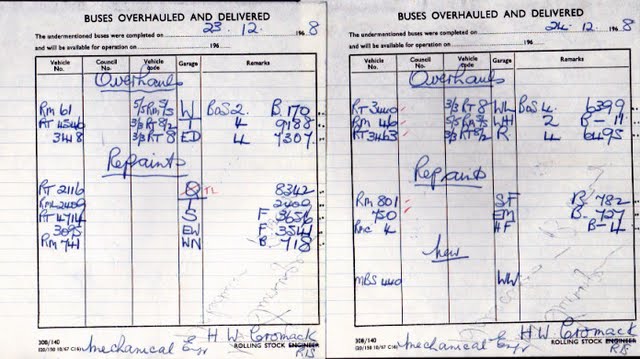 BUSES OVERHAULED AND DELIVERED
The undermentioned buses were completed on 23. 12. 1968
and will be available for operation on 196
Vehicle No. Council No. Vehicle code Garage Remarks
Overhauls
RM 61 5/5 RM 7/5 W BoS 2. B. 170
RT 4546 3/3 RT 8/2 T 4 9188
3418 3/3 RT 8 ED 4 7307.
Repaints
RT 2116 Q TL 8342
RML 2409 T 2409
RT 4714 S F 3656
3095 EW F 3541
RM 741 WN B. 718
308/140
Mechanical Engr H W Cromack
ROLLING STOCK ENGINEER
BUSES OVERHAULED AND DELIVERED
The undermentioned buses were completed on 24. 12. 1968
and will be available for operation on 196
Vehicle No. Council No. Vehicle code Garage Remarks
Overhauls
RT 3440 3/3 RT 8 WL BoS 4. 6399
RM 46 5/5 RM 7/5 WH 2 B-11
RT 3463 3/3 RT 8/2 R. 4 6495
Repaints
RM 801 SF B. 782
750 EM B. 727
RMC 4 HF B-4
New
MBS 440 WW
308/140
Mechanical Engr H.W. Cromack
ROLLING STOCK ENGINEER